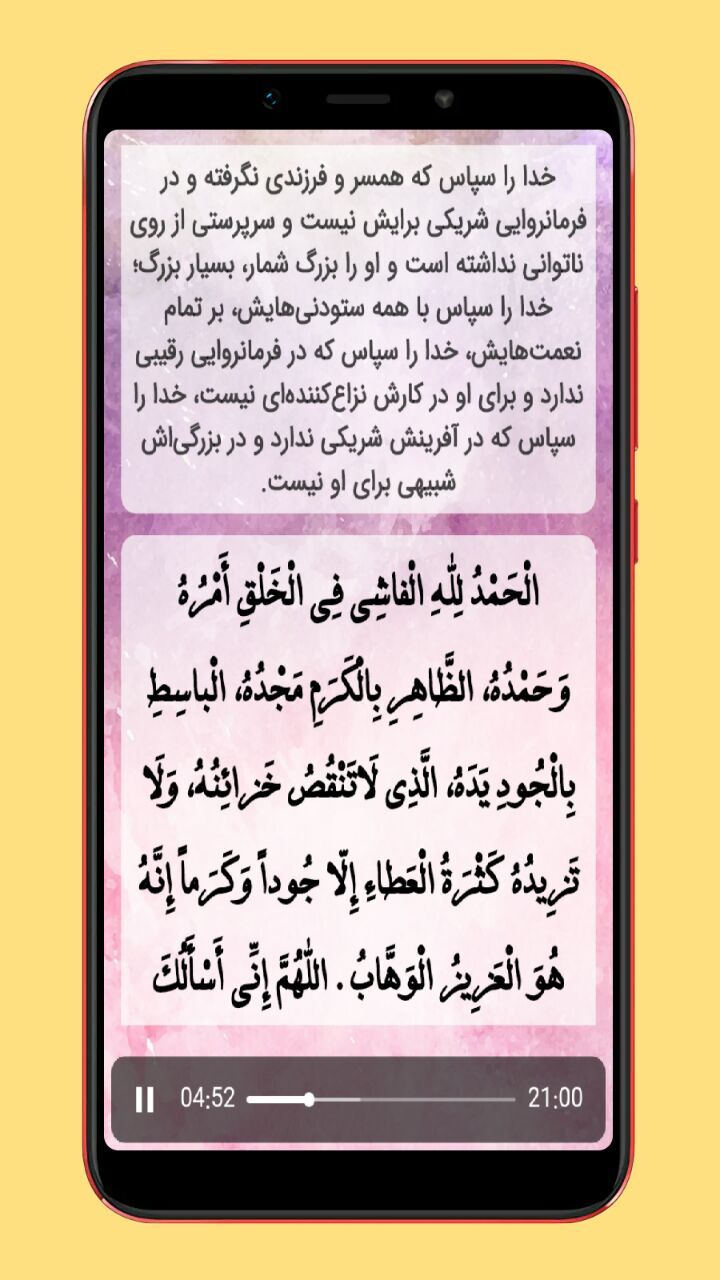 خدا را سپاس که همسر و فرزندی نگرفته و در
فرمانروایی شریکی برایش نیست و سرپرستی از روی
ناتوانی نداشته است و او را بزرگ شمار، بسیار بزرگ؛
خدا را سپاس با همه ستودنی‌هایش، بر تمام
نعمت‌هایش، خدا را سپاس که در فرمانروایی رقیبی
ندارد و برای او در کارش نزاع‌کننده‌ای نیست، خدا را
سپاس که در آفرینش شریکی ندارد و در بزرگی‌اش
شبیهی برای او نیست.
الْحَمْدُ لِلّٰهِ الْفاشِی فِی الْخَلْقِ أَمْرُهُ
وَحَمْدُهُ، الظَّاهِرِ بِالْكَرَمِ مَجْدُهُ، الْباسِطِ
بِالْجُودِ يَدَهُ، الَّذِی لَاتَنْقُصُ خَزائِنُهُ، وَلَا
تَزِيدُهُ كَثْرَةُ الْعَطاءِ إِلّا جُوداً وَكَرَماً إِنَّهُ
هُوَ الْعَزِيزُ الْوَهَّابُ. اللّٰهُمَّ إِنِّی أَسْأَلُكَ
04:52 21:00